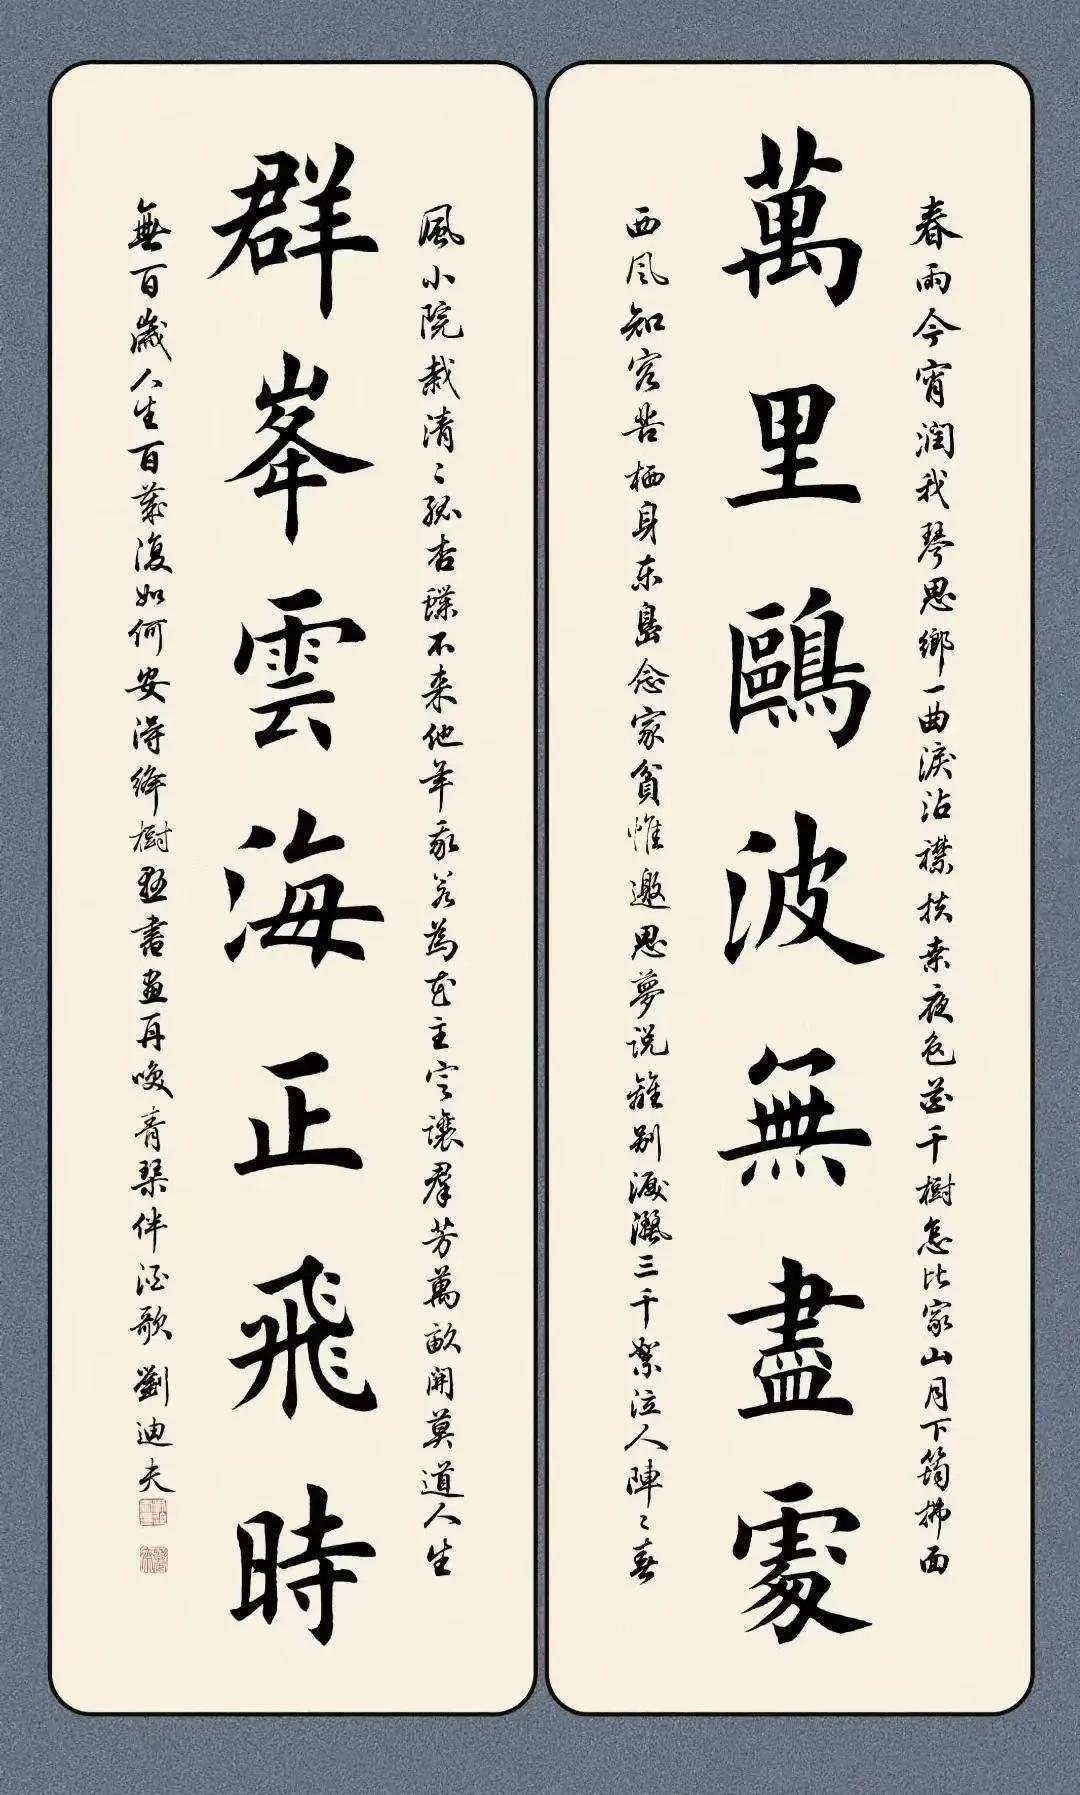 春雨今宵润我琴思鄉一曲淚沾襟扶桑夜色花千樹怎比家山月下筠拂面
萬里鷗波無盡處
西风知客苦栖身东島念家貧惟邀思夢说離别淚三千絮泣人陣〻春
風小院栽清〻孤杏蝶不来他年我若為花主定讓群芳萬畝開莫道人生
群峯雲海正飛時
無百歲人生百歲復如何安得絳樹双書畫再喚青琴伴酒歌 劉迪夫